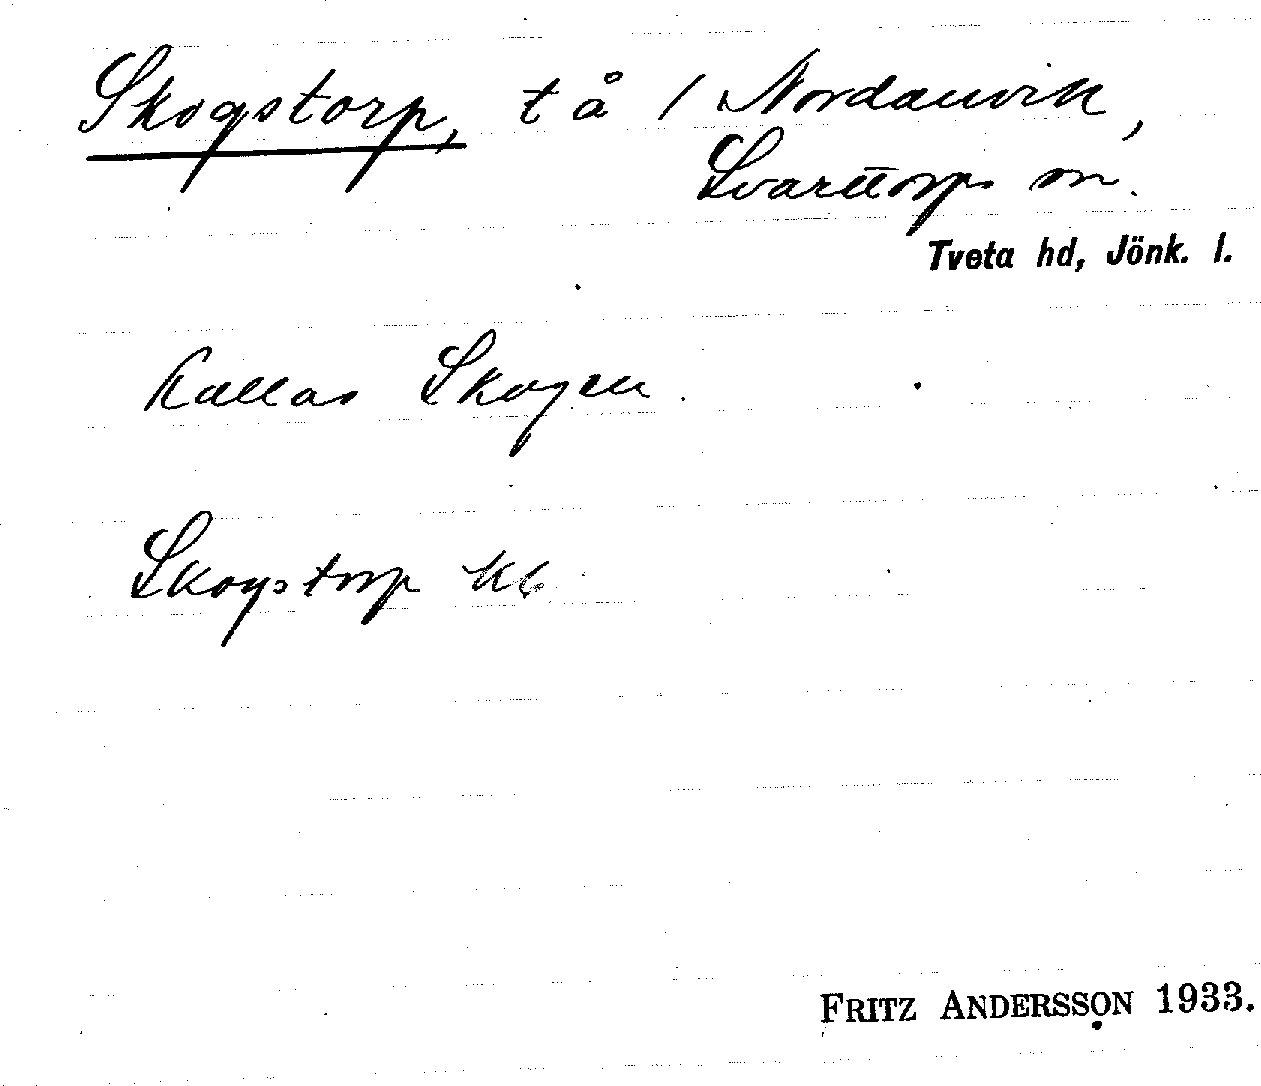 Skogstorp, tå / Nordanvik,
Svarttorps sn.
Tveta hd, Jönk. l.
Kallas Skogen.
Skogstorp kb
FRITZ ANDERSSON 1933.